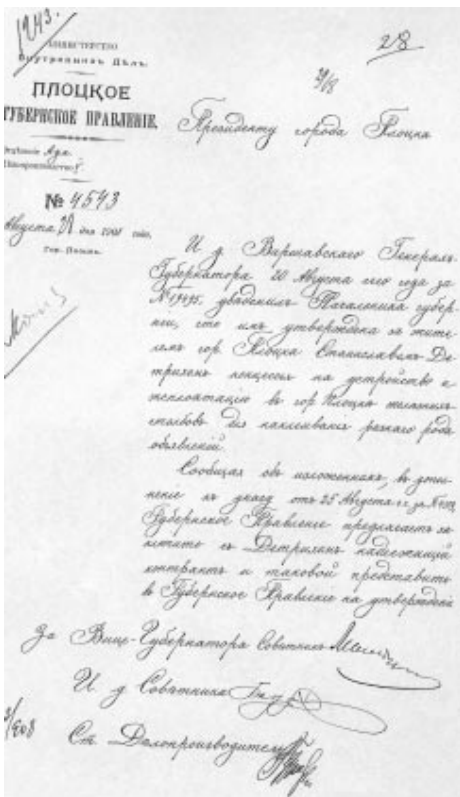 1243.
28
МИНИСТЕРСТВО
Внутреннихъ Дѣлъ.
ПЛОЦКОЕ
ГУБЕРНСКОЕ ПРАВЛЕНІЕ.
Президенту города Плоцка
Отдѣленіе Адм.
№ 4543
Августа дня 1908 года.
Гор. Плоцкъ.
И д Варшавскаго Генералъ
Губернатора 20 Августа сего года за
№ 19495, увѣдомилъ Начальника губер-
ніи, что имъ утверждена за жите
лемъ гор Плоцка Станиславомъ Де
трихомъ концессія на устройство и
эксплоатацію въ гор Плоцкѣ
столбовъ для наклеиванія разнаго рода
объявленій.
Сообщая объ изложенномъ, въ допол
неніе къ указу отъ 25 Августа с. г. за №
Губернское Правленіе предлагаетъ за
ключить съ Детрихомъ надлежащій
контрактъ и таковой представить
въ Губернское Правленіе на утвержденіе
За Вице-Губернатора Совѣтникъ
И д Совѣтника
Ст Дѣлопроизводитель